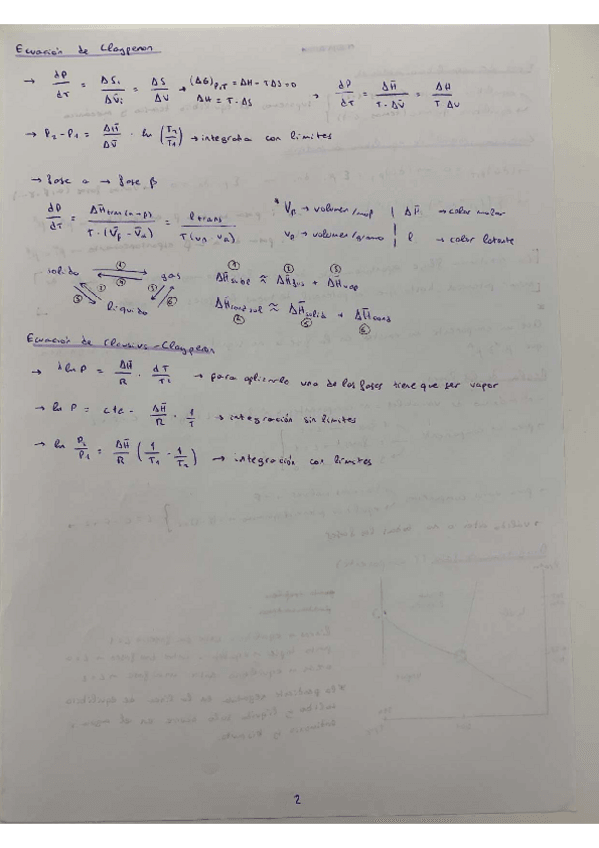 Ecuación de Clayperon
→ dP/dT = ΔS̄i/ΔV̄i = ΔS/ΔV → (ΔG)P,T = ΔH - TΔS = 0 → dP/dT = ΔH̄/T·ΔV̄ = ΔH/T ΔV
ΔH = T·ΔS
→ P2 - P1 = ΔH̄/ΔV̄ · ln (T2/T1) → integrada con límites
→ fase α → fase β
dP/dT = ΔH̄trans(α→β)/T·(V̄β - V̄α) = ltrans/T(vβ vα)
* Vβ → volumen/mol | ΔH̄ → calor molar
vβ → volumen/gramo | l → calor latente
sólido gas
líquido
ΔH̄subl ≈ ΔH̄fus + ΔH̄vap
ΔH̄cond sol ≈ ΔH̄solid + ΔH̄cond
Ecuación de Clausius-Clayperon
→ dlnP = ΔH̄/R · dT/T² → para aplicarla una de las fases tiene que ser vapor
→ ln P = cte - ΔH̄/R · 1/T → integración sin límites
→ ln P2/P1 = ΔH̄/R (1/T1 - 1/T2) → integración con límites
2